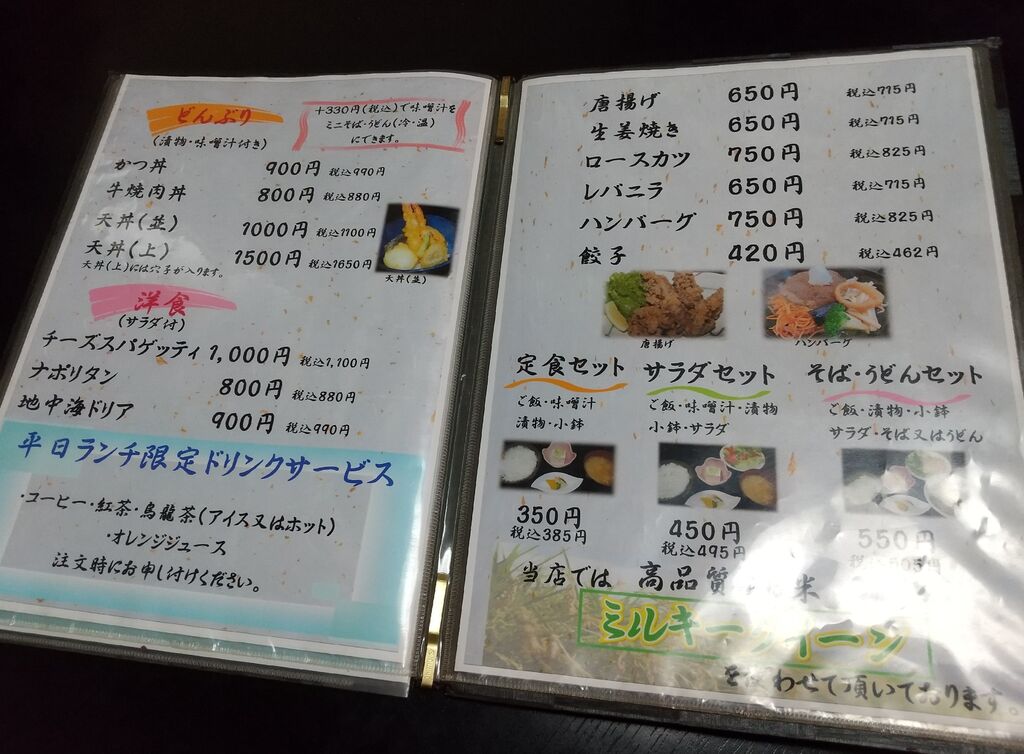 どんぶり
(漬物・味噌汁付き)
+330円(税込)で味噌汁を
ミニそば・うどん(冷・温)
にできます。
かつ丼 900円 税込990円
牛焼肉丼 800円 税込880円
天丼(並) 1000円 税込1100円
天丼(上) 1500円 税込1650円
天丼(上)には穴子が入ります。
天丼(並)
洋食
(サラダ付)
チーズスパゲッティ 1,000円 税込1,100円
ナポリタン 800円 税込880円
地中海ドリア 900円 税込990円
平日ランチ限定ドリンクサービス
・コーヒー・紅茶・烏龍茶(アイス又はホット)
・オレンジジュース
注文時にお申し付けください。
唐揚げ 650円 税込715円
生姜焼き 650円 税込715円
ロースカツ 750円 税込825円
レバニラ 650円 税込715円
ハンバーグ 750円 税込825円
餃子 420円 税込462円
唐揚げ ハンバーグ
定食セット
ご飯・味噌汁
漬物・小鉢
350円
税込385円
サラダセット
ご飯・味噌汁・漬物
小鉢・サラダ
450円
税込495円
そば・うどんセット
ご飯・漬物・小鉢
サラダ・そば又はうどん
550円
税込605円
当店では 高品質 米
ミルキークイーン
を わせて頂いております。